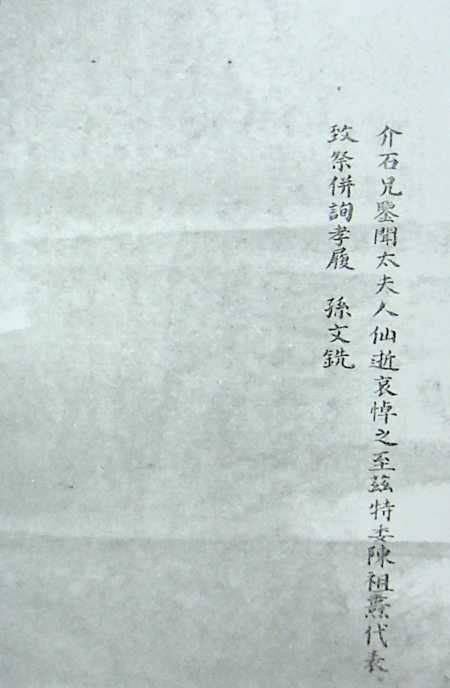 介石兄鑒聞太夫人仙逝哀悼之至茲特委陳祖燾代表
致祭併詢孝履　孫文銑